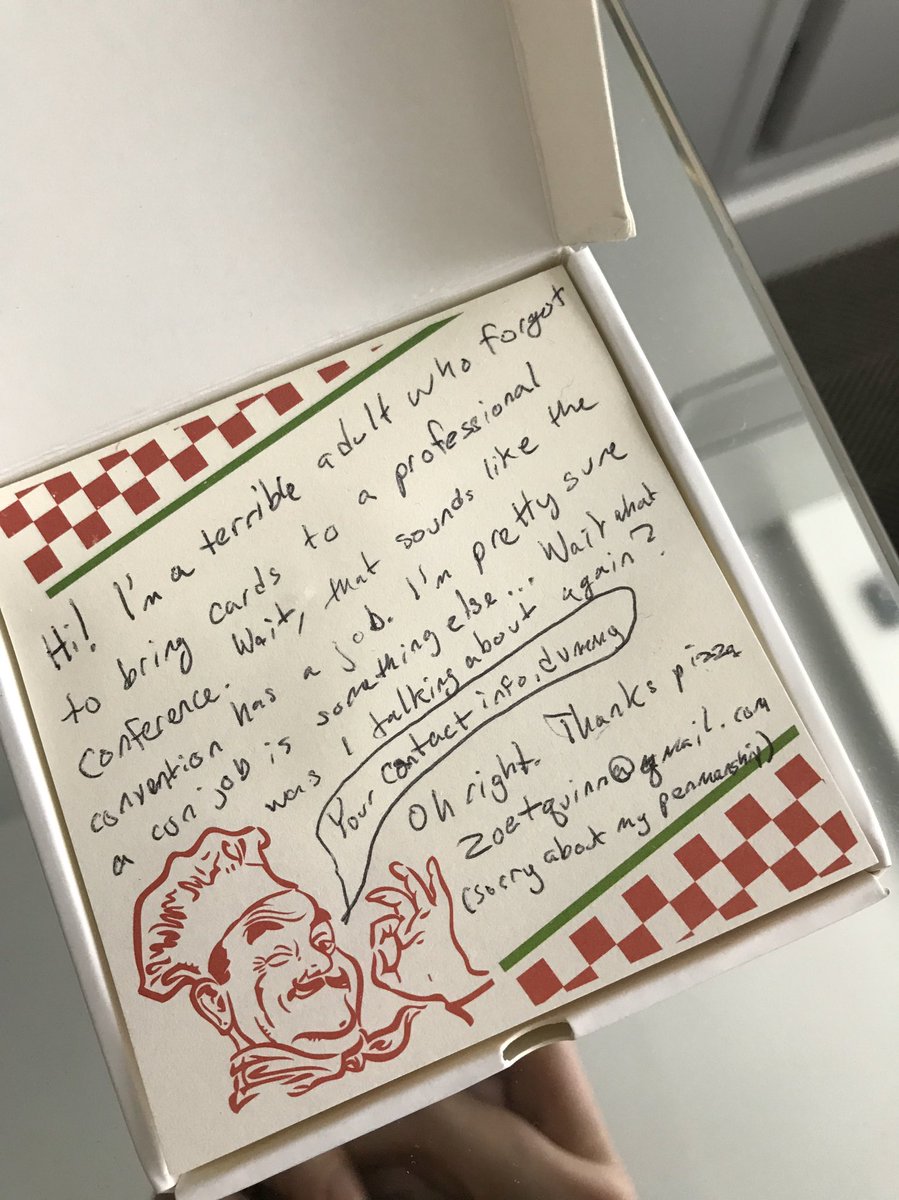 Hi! I'm a terrible adult who forgot
to bring cards to a professional
conference. Wait, that sounds like the
convention has a job. I'm pretty sure
a con job is something else... Wait what
was I talking about again?
Your contact info, dummy
Oh right. Thanks pizza
zoetquinn@gmail.com
(sorry about my penmanship)